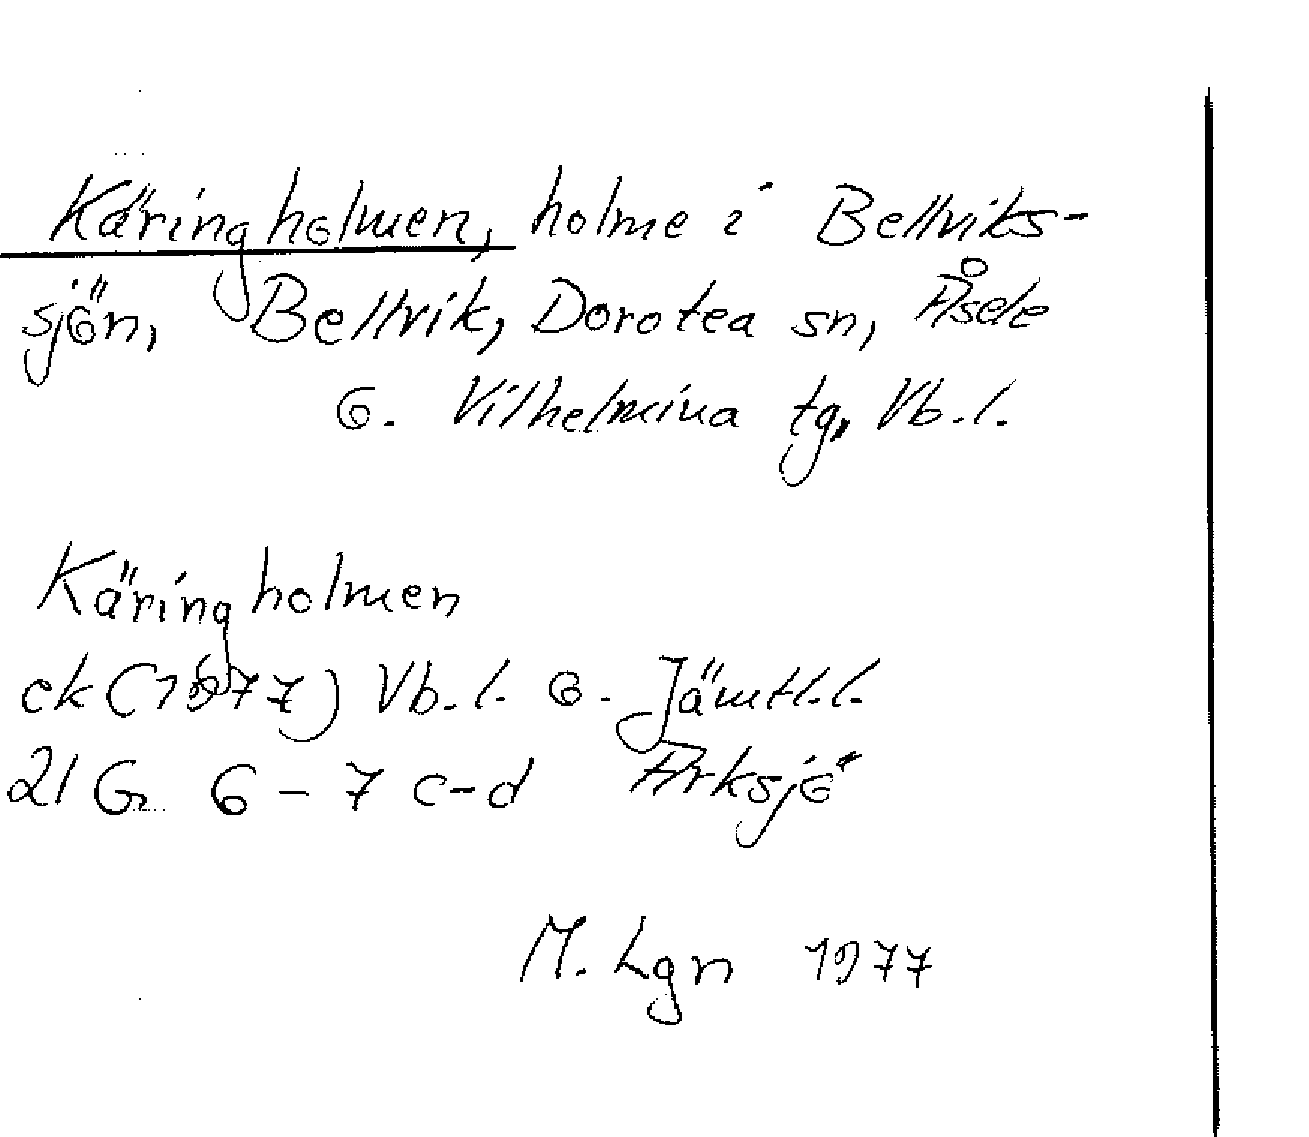 Käringholmen, holme i Bellviks-
sjön, Bellvik, Dorotea sn, Åsele
o. Vilhelmina tg, Vb.l.
Käringholmen
ek (1977) Vb.l. o. Jämtl.l.
21 G 6 - 7 c-d Arksjö
M. Lgn 1977